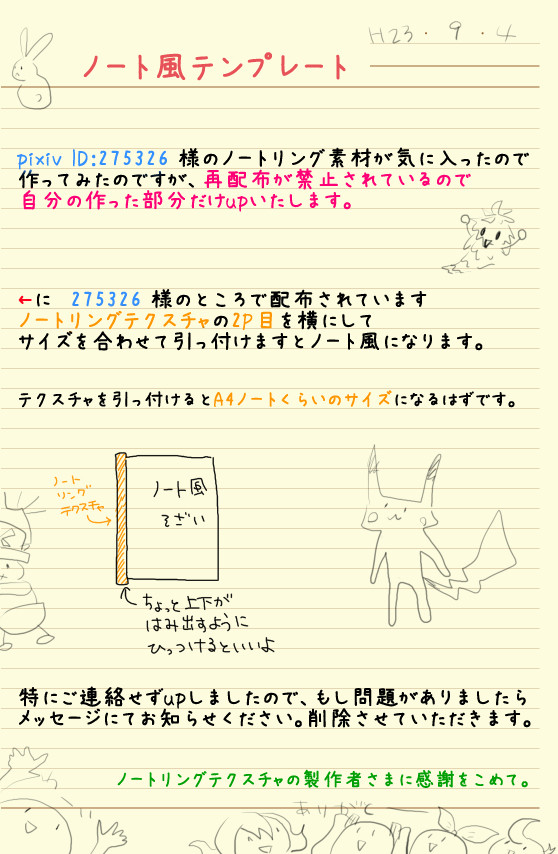 H23.9.4
ノート風テンプレート
pixiv ID:275326 様のノートリング素材が気に入ったので
作ってみたのですが、再配布が禁止されているので
自分の作った部分だけupいたします。
←に 275326 様のところで配布されています
ノートリングテクスチャの2P目を横にして
サイズを合わせて引っ付けますとノート風になります。
テクスチャを引っ付けるとA4ノートくらいのサイズになるはずです。
ノート
リング
テクスチャ
ノート風
そざい
ちょっと上下が
はみ出すように
ひっつけるといいよ
特にご連絡せずupしましたので、もし問題がありましたら
メッセージにてお知らせください。削除させていただきます。
ノートリングテクスチャの製作者さまに感謝をこめて。
ありがと